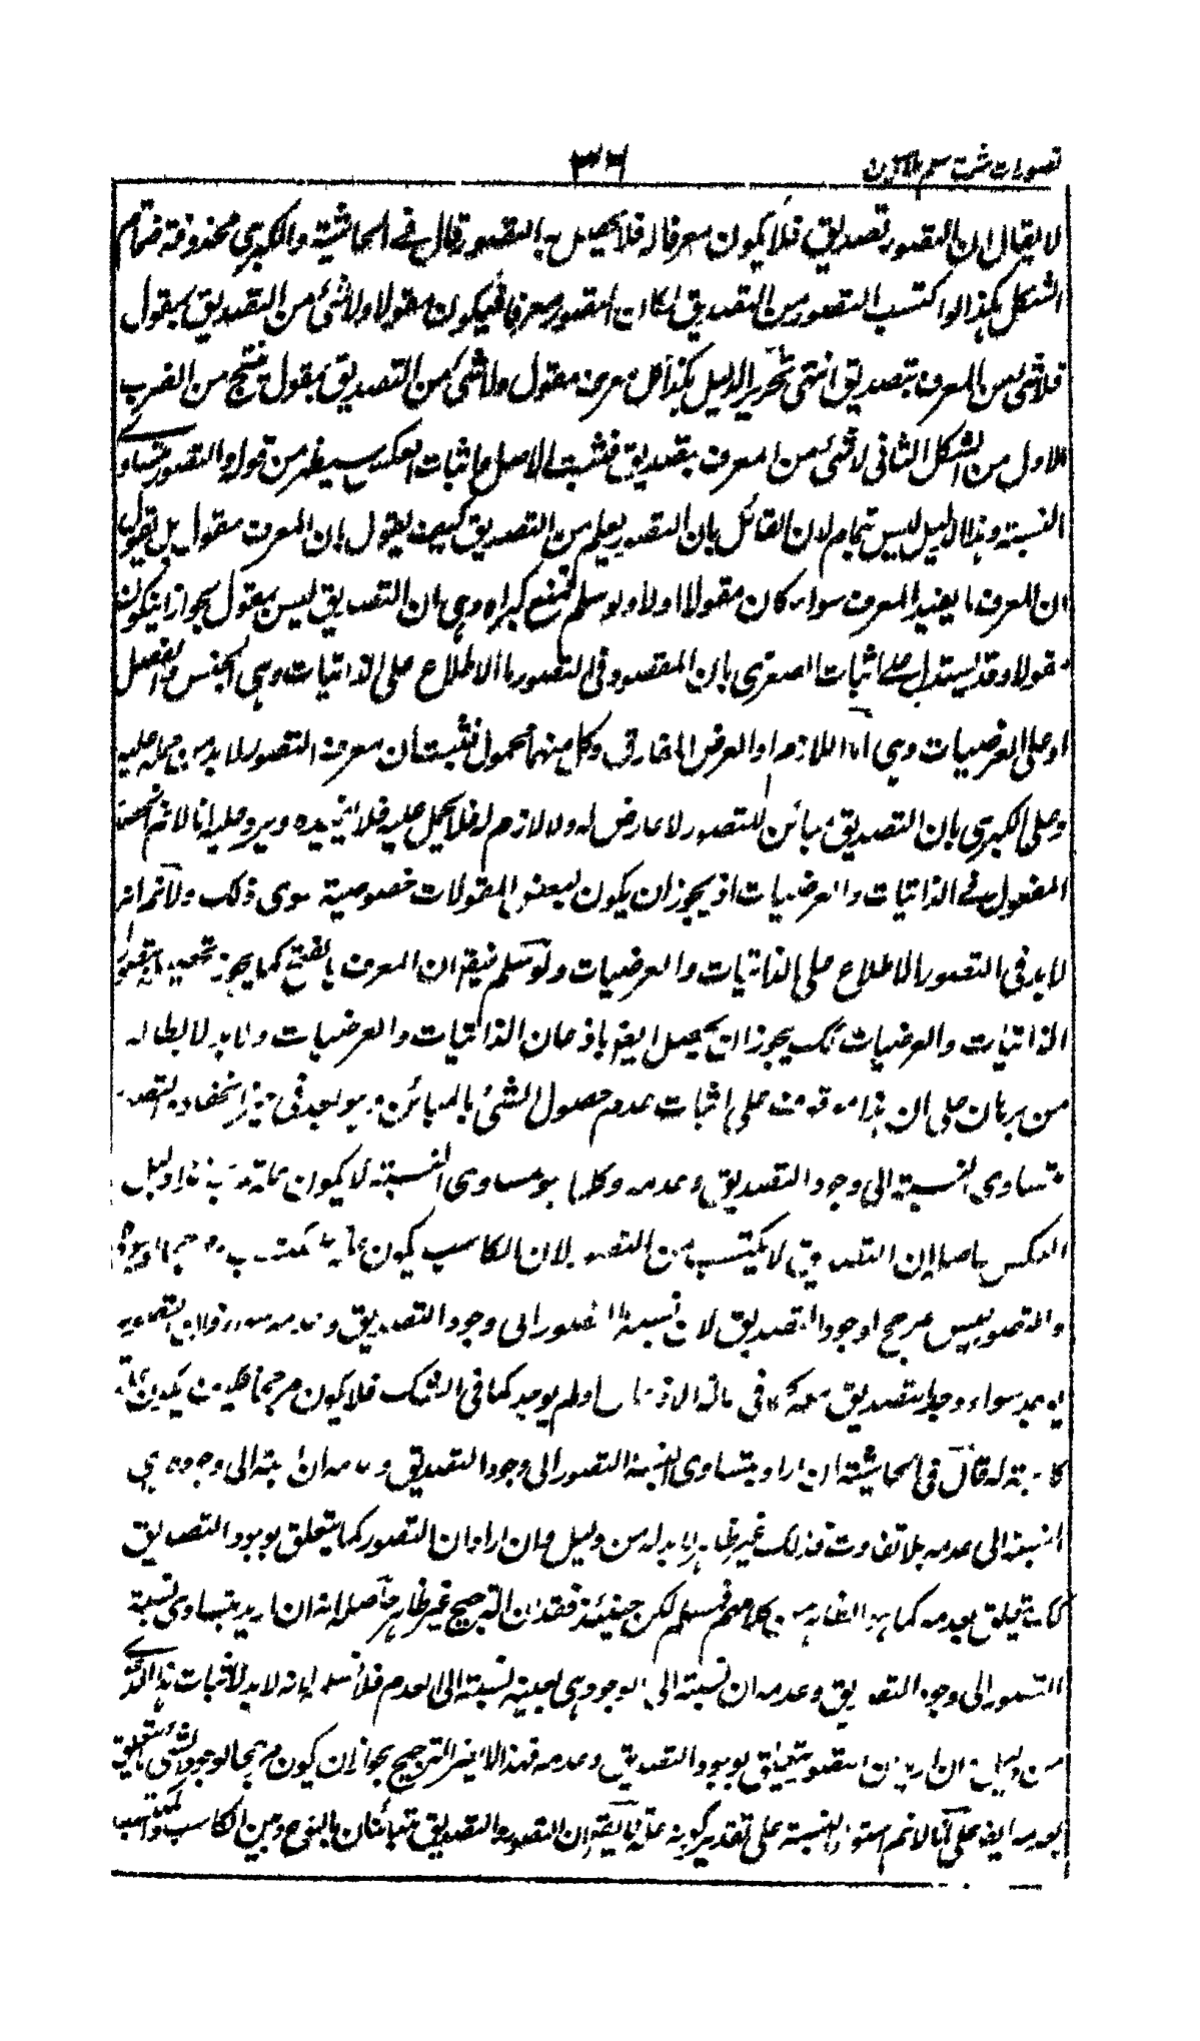 تصورات شرح سلم
٣٦
لا يقال ان التصور تصديق فلا يكون معرفا له فلا يحصل به التصور قال في الحاشية والكبرى محذوفة ضام
الشكل هكذا لو اكتسب التصور من التصديق لكان التصور معرفا فيكون مقولا ولا شئ من التصديق بمقول
فلا شئ من المعرف بتصديق انتهى تحرير الدليل هكذا كل معرف مقول ولا شئ من التصديق بمقول ينتج من الضرب
الاول من الشكل الثاني لا شئ من المعرف بتصديق فثبت الاصل واثبات العكس سيظهر من قوله والتصور متساوي
النسبة وهذا الدليل ليس بتمام لان القائل بان التصور يعلم من التصديق كيف يقول ان المعرف مقول بل يقول
ان المعرف ما يفيد المعرف سواء كان مقولا اولا ولو سلم فتمنع كبراه وهي ان التصديق ليس بمقول بجواز ان يكون
مقولا وقد يستدل على اثبات الصغرى بان المقصود في التصور اما الاطلاع على الذاتيات وهي الجنس والفصل
او على العرضيات وهي اما اللازم او العرض المفارق وكل منهما محمول فثبت ان معرف التصور لا بد من حمله عليه
وعلى الكبرى بان التصديق مبائن للتصور لا عارض له ولا لازم له فلا يحمل عليه فلا يفيده ويرد عليه انا لا نم
المقول في الذاتيات والعرضيات اذ يجوز ان يكون لبعض المقولات خصوصية سوى ذلك ولا نم انه
لا بد في التصور الاطلاع على الذاتيات والعرضيات ولو سلم فيقم ان المعرف بالفتح كما يجوز تحصيله بتصور
الذاتيات والعرضيات كك يجوز ان يحصل ايضا باذعان الذاتيات والعرضيات ولا بد لابطاله
من برهان على ان هذا موقوف على اثبات عدم حصول الشئ بالمبائن وهو بعد في حيز الخفاء والتصور
متساوي النسبة الى وجود التصديق وعدمه وكلما هو متساوي النسبة لا يكون علة مرجحة هذا دليل
العكس حاصله ان التصديق لا يكتسب من التصور لان الكاسب يكون علة للمكتسب
والتصور ليس مرجح لوجود التصديق لان نسبة التصور الى وجود التصديق وعدمه سواء فان التصور
يوجد سواء وجد التصديق معه كما في مادة الاذعان او لم يوجد كما في الشك فلا يكون مرجحا فكيف يكون علة
كاسبة له قال في الحاشية ان اراد بتساوي النسبة التصور الى وجود التصديق وعدمه ان نسبته الى وجوده هي
النسبة الى عدمه بلا تفاوت فذلك غير ظاهر لا بد له من دليل وان اراد ان التصور كما يتعلق بوجود التصديق
كك يتعلق بعدمه كما هو الظاهر من كلامهم فمسلم لكن حينئذ فقدان الترجيح غير ظاهر حاصله انه ان اريد بتساوي نسبة
التصور الى وجود التصديق وعدمه ان نسبته الى الوجود هي بعينه نسبته الى العدم فلا نسلمه لانه لا بد لاثبات هذا
من دليل وان اريد ان التصور يتعلق بوجود التصديق وعدمه فهذا لا يضر الترجيح بجواز ان يكون مرجحا لوجود الشئ مع تعلق
بعدمه ايضا على انا لا نم استواء النسبة على تقدير كونه علة لا يقم ان التصور والتصديق متبائنان بالنوع وبين الكاسب والمكتسب